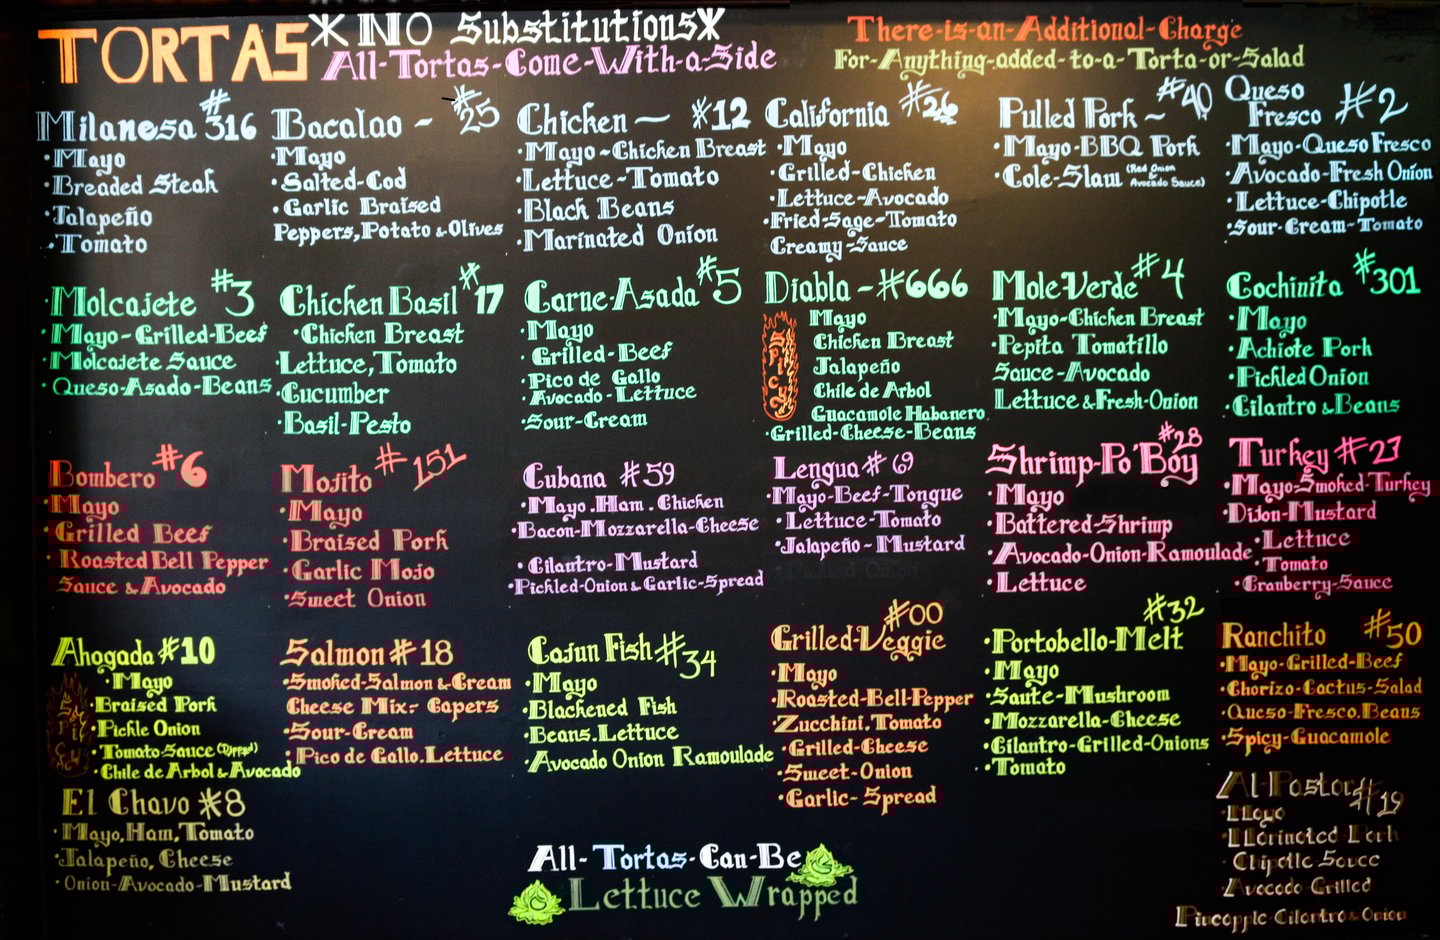 TORTAS
*NO Substitutions*
All-Tortas-Come-With-a-Side
There-is-an-Additional-Charge
For-Anything-added-to-a-Torta-or-Salad
Milanesa #316
·Mayo
·Breaded Steak
·Jalapeño
·Tomato
Bacalao - #25
·Mayo
·Salted-Cod
·Garlic Braised
Peppers, Potato & Olives
Chicken - #12
·Mayo-Chicken Breast
·Lettuce-Tomato
·Black Beans
·Marinated Onion
California #26
·Mayo
·Grilled-Chicken
·Lettuce-Avocado
·Fried-Sage-Tomato
Creamy-Sauce
Pulled Pork - #40
·Mayo-BBQ Pork
·Cole-Slaw (Red Onion
& Avocado Sauce)
Queso
Fresco #2
·Mayo-Queso Fresco
·Avocado-Fresh Onion
·Lettuce-Chipotle
·Sour-Cream-Tomato
Molcajete #3
·Mayo-Grilled-Beef
·Molcajete Sauce
·Queso-Asado-Beans
Chicken Basil #17
·Chicken Breast
·Lettuce, Tomato
·Cucumber
·Basil-Pesto
Carne-Asada #5
·Mayo
·Grilled-Beef
·Pico de Gallo
·Avocado-Lettuce
·Sour-Cream
Diabla - #666
Spicy
Mayo
Chicken Breast
Jalapeño
Chile de Arbol
Guacamole Habanero
·Grilled-Cheese-Beans
Mole-Verde #4
·Mayo-Chicken Breast
·Pepita Tomatillo
Sauce-Avocado
Lettuce & Fresh-Onion
Cochinita #301
·Mayo
·Achiote Pork
·Pickled Onion
·Cilantro & Beans
Bombero #6
·Mayo
·Grilled Beef
·Roasted Bell Pepper
Sauce & Avocado
Mojito #151
·Mayo
·Braised Pork
·Garlic Mojo
·Sweet Onion
Cubana #59
·Mayo. Ham. Chicken
·Bacon-Mozzarella-Cheese
·Cilantro-Mustard
·Pickled-Onion & Garlic-Spread
Lengua #69
·Mayo-Beef-Tongue
·Lettuce-Tomato
·Jalapeño-Mustard
Shrimp-Po'Boy #28
·Mayo
·Battered-Shrimp
·Avocado-Onion-Ramoulade
·Lettuce
Turkey #23
·Mayo-Smoked-Turkey
·Dijon-Mustard
·Lettuce
·Tomato
·Cranberry-Sauce
Ahogada #10
Spicy
·Mayo
·Braised Pork
·Pickle Onion
·Tomato-Sauce (Dipped)
·Chile de Arbol & Avocado
Salmon #18
·Smoked-Salmon & Cream
Cheese Mix-Capers
·Sour-Cream
·Pico de Gallo. Lettuce
Cajun Fish #34
·Mayo
·Blackened Fish
·Beans. Lettuce
·Avocado Onion Ramoulade
Grilled-Veggie #00
·Mayo
·Roasted-Bell-Pepper
·Zucchini. Tomato
·Grilled-Cheese
·Sweet-Onion
·Garlic-Spread
·Portobello-Melt #32
·Mayo
·Saute-Mushroom
·Mozzarella-Cheese
·Cilantro-Grilled-Onions
·Tomato
Ranchito #50
·Mayo-Grilled-Beef
·Chorizo-Cactus-Salad
·Queso-Fresco. Beans
·Spicy-Guacamole
El Chavo #8
·Mayo, Ham, Tomato
·Jalapeño, Cheese
·Onion-Avocado-Mustard
Al-Pastor #19
·Mayo
·Marinated Pork
·Chipotle Sauce
·Avocado-Grilled
Pineapple-Cilantro & Onion
All-Tortas-Can-Be
Lettuce Wrapped